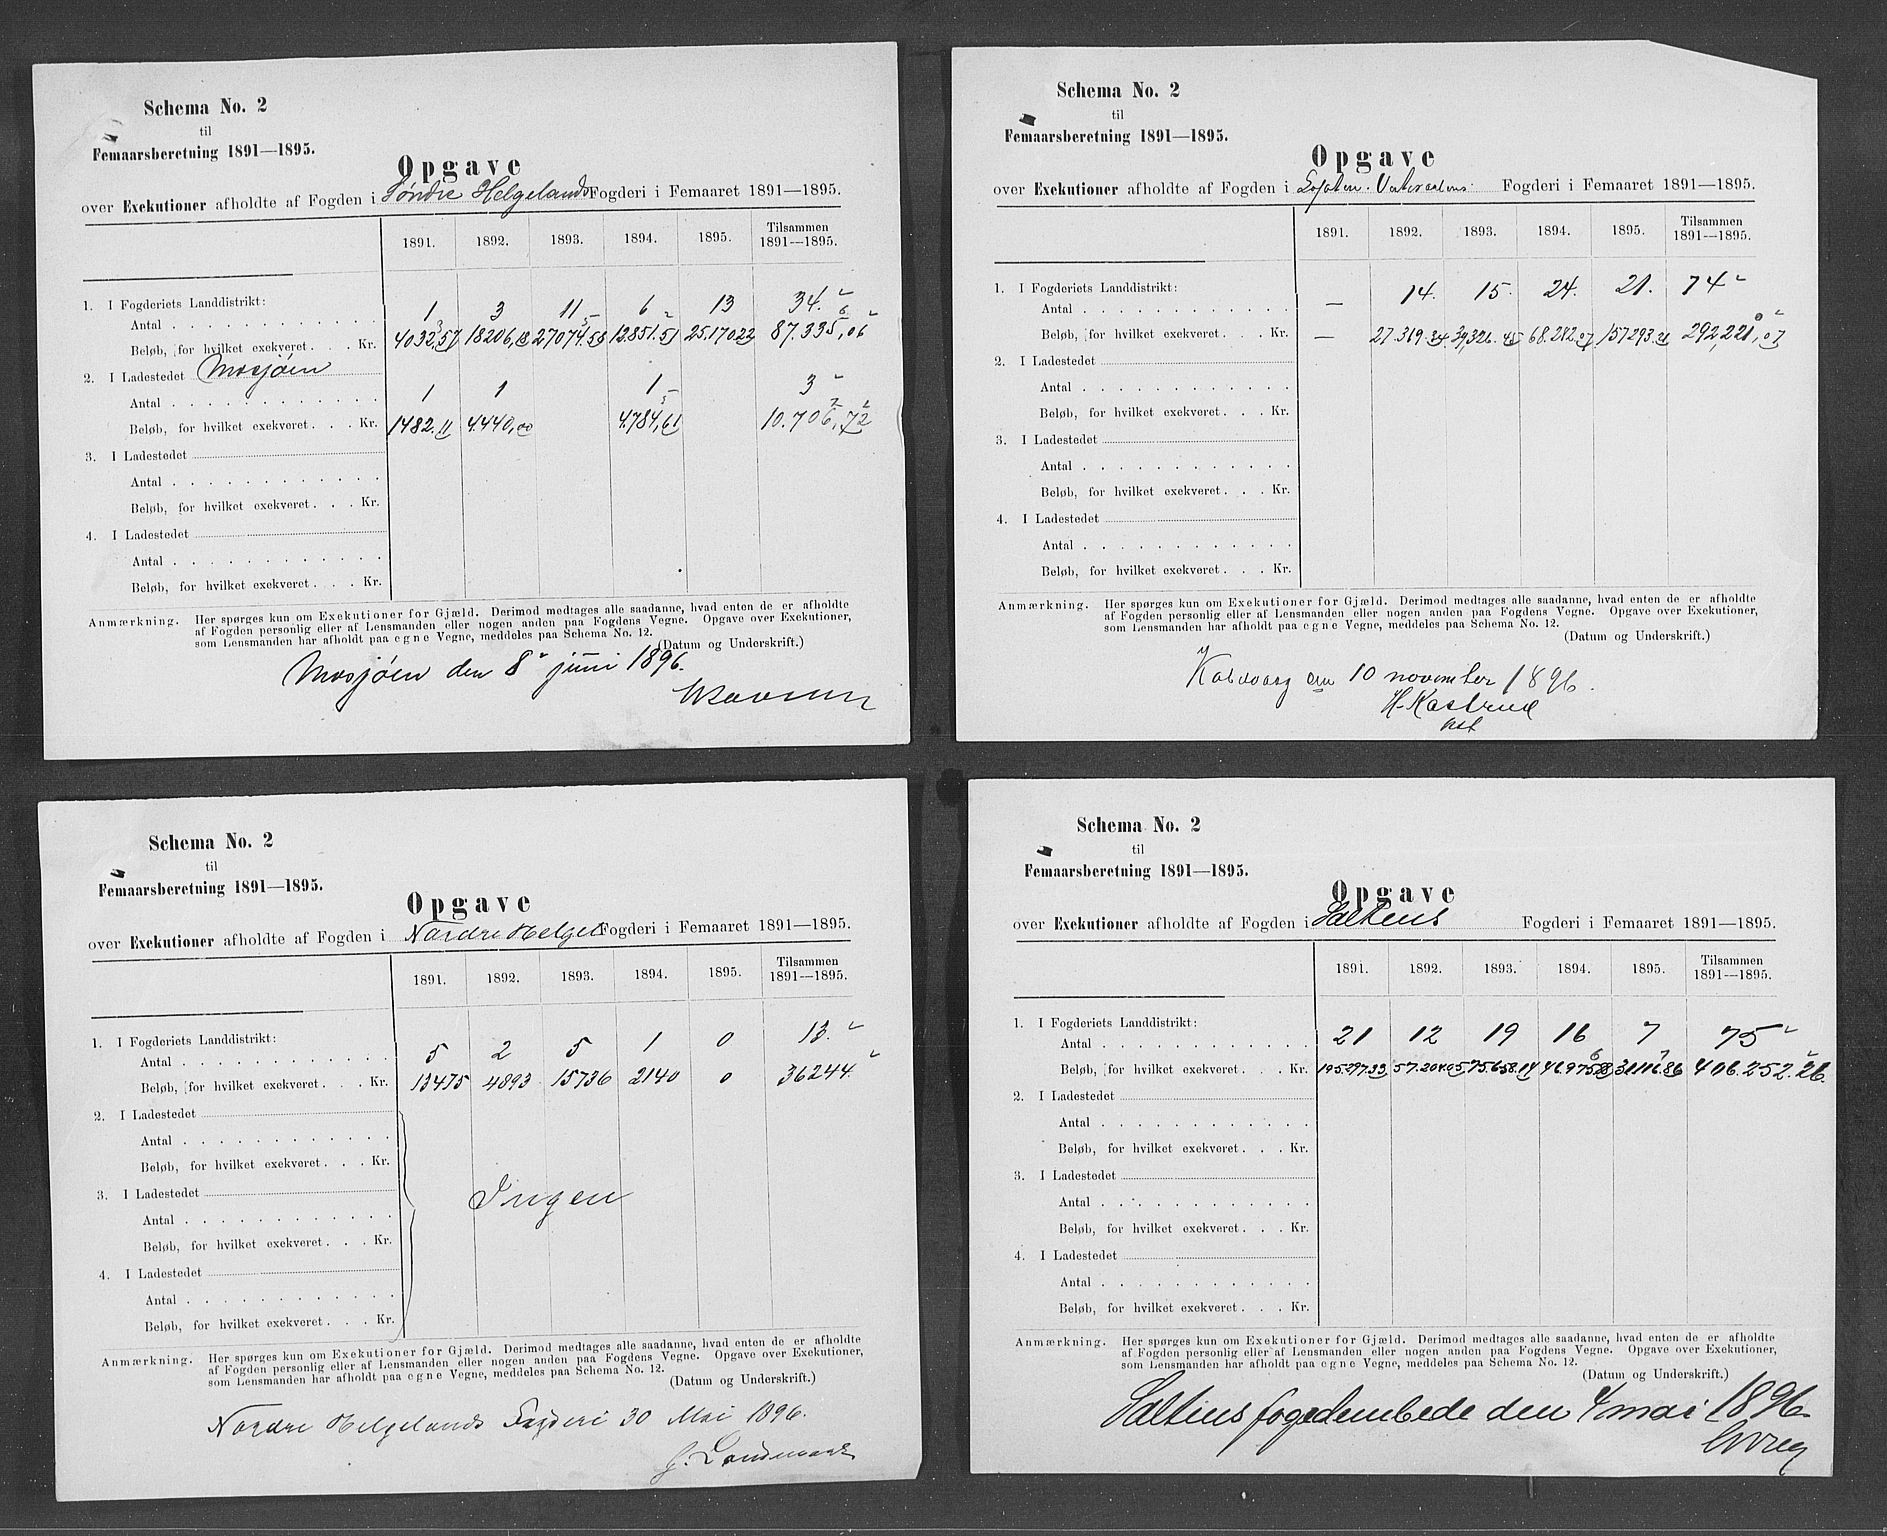 Schema No. 2
til
Femaarsberetning 1891—1895.
Opgave
over Exekutioner afholdte af Fogden i Søndre Helgelands Fogderi i Femaaret 1891—1895.
1891. 1892. 1893. 1894. 1895. Tilsammen 1891—1895.
1. I Fogderiets Landdistrikt:
Antal 1 3 11 6 13 34.
Beløb, for hvilket exekveret Kr. 4032,57 18206,18 27074.58 12851.51 25170.22 87.335,06
2. I Ladestedet Mosjøen
Antal 1 1 1 3
Beløb, for hvilket exekveret Kr. 1482.11 4.440,00 4.784,61 10.706,72
3. I Ladestedet
Antal
Beløb, for hvilket exekveret Kr.
4. I Ladestedet
Antal
Beløb, for hvilket exekveret Kr.
Anmærkning. Her spørges kun om Exekutioner for Gjæld. Derimod medtages alle saadanne, hvad enten de er afholdte
af Fogden personlig eller af Lensmanden eller nogen anden paa Fogdens Vegne. Opgave over Exekutioner,
som Lensmanden har afholdt paa egne Vegne, meddeles paa Schema No. 12.
(Datum og Underskrift.)
Mosjøen den 8 juni 1896.
Schema No. 2
til
Femaarsberetning 1891—1895.
Opgave
over Exekutioner afholdte af Fogden i Lofoten Vesteraalens Fogderi i Femaaret 1891—1895.
1891. 1892. 1893. 1894. 1895. Tilsammen 1891—1895.
1. I Fogderiets Landdistrikt:
Antal — 14. 15. 24. 21. 74
Beløb, for hvilket exekveret Kr. — 27.369.34 39,326.45 68.242.07 157293.21 292,221,07
2. I Ladestedet
Antal
Beløb, for hvilket exekveret Kr.
3. I Ladestedet
Antal
Beløb, for hvilket exekveret Kr.
4. I Ladestedet
Antal
Beløb, for hvilket exekveret Kr.
Anmærkning. Her spørges kun om Exekutioner for Gjæld. Derimod medtages alle saadanne, hvad enten de er afholdte
af Fogden personlig eller af Lensmanden eller nogen anden paa Fogdens Vegne. Opgave over Exekutioner,
som Lensmanden har afholdt paa egne Vegne, meddeles paa Schema No. 12.
(Datum og Underskrift.)
Kabelvaag den 10 november 1896.
H. Kastrud
kst
Schema No. 2
til
Femaarsberetning 1891—1895.
Opgave
over Exekutioner afholdte af Fogden i Nordre Helgel. Fogderi i Femaaret 1891—1895.
1891. 1892. 1893. 1894. 1895. Tilsammen 1891—1895.
1. I Fogderiets Landdistrikt:
Antal 5 2 5 1 0 13.
Beløb, for hvilket exekveret Kr. 13475 4893 15736 2140 0 36244.
2. I Ladestedet
Antal
Beløb, for hvilket exekveret Kr.
3. I Ladestedet
Ingen
Antal
Beløb, for hvilket exekveret Kr.
4. I Ladestedet
Antal
Beløb, for hvilket exekveret Kr.
Anmærkning. Her spørges kun om Exekutioner for Gjæld. Derimod medtages alle saadanne, hvad enten de er afholdte
af Fogden personlig eller af Lensmanden eller nogen anden paa Fogdens Vegne. Opgave over Exekutioner,
som Lensmanden har afholdt paa egne Vegne, meddeles paa Schema No. 12.
(Datum og Underskrift.)
Nordre Helgelands Fogderi 30 Mai 1896.
J. Landmark
Schema No. 2
til
Femaarsberetning 1891—1895.
Opgave
over Exekutioner afholdte af Fogden i Saltens Fogderi i Femaaret 1891—1895.
1891. 1892. 1893. 1894. 1895. Tilsammen 1891—1895.
1. I Fogderiets Landdistrikt:
Antal 21 12 19 16 7 75
Beløb, for hvilket exekveret Kr. 195.297.33 57.204.05 75.658.14 46.975.88 31116.86 406.252.26.
2. I Ladestedet
Antal
Beløb, for hvilket exekveret Kr.
3. I Ladestedet
Antal
Beløb, for hvilket exekveret Kr.
4. I Ladestedet
Antal
Beløb, for hvilket exekveret Kr.
Anmærkning. Her spørges kun om Exekutioner for Gjæld. Derimod medtages alle saadanne, hvad enten de er afholdte
af Fogden personlig eller af Lensmanden eller nogen anden paa Fogdens Vegne. Opgave over Exekutioner,
som Lensmanden har afholdt paa egne Vegne, meddeles paa Schema No. 12.
(Datum og Underskrift.)
Saltens fogedembede den 4 mai 1896.